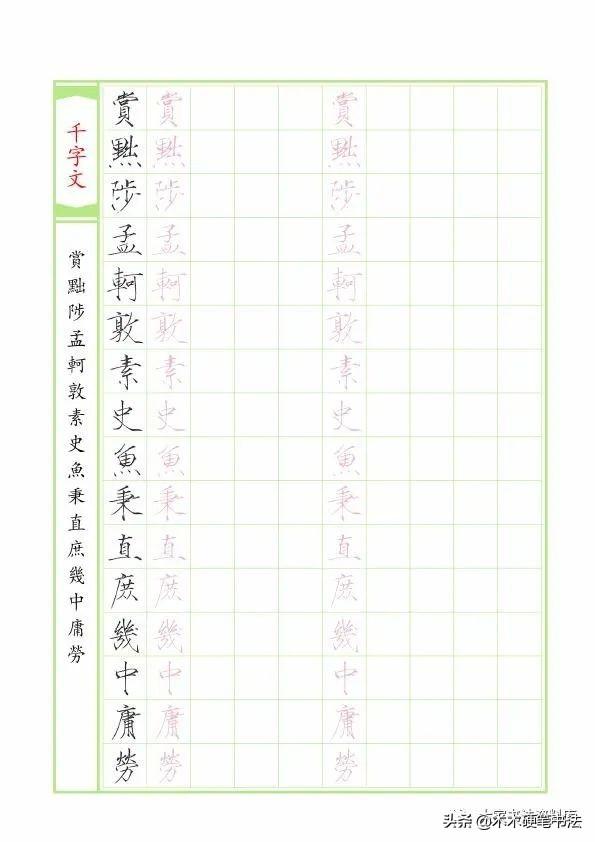 千字文
賞黜陟孟軻敦素史魚秉直庶幾中庸勞
賞黜陟孟軻敦素史魚秉直庶幾中庸勞
賞黜陟孟軻敦素史魚秉直庶幾中庸勞
賞黜陟孟軻敦素史魚秉直庶幾中庸勞
头条 @木木硬笔书法